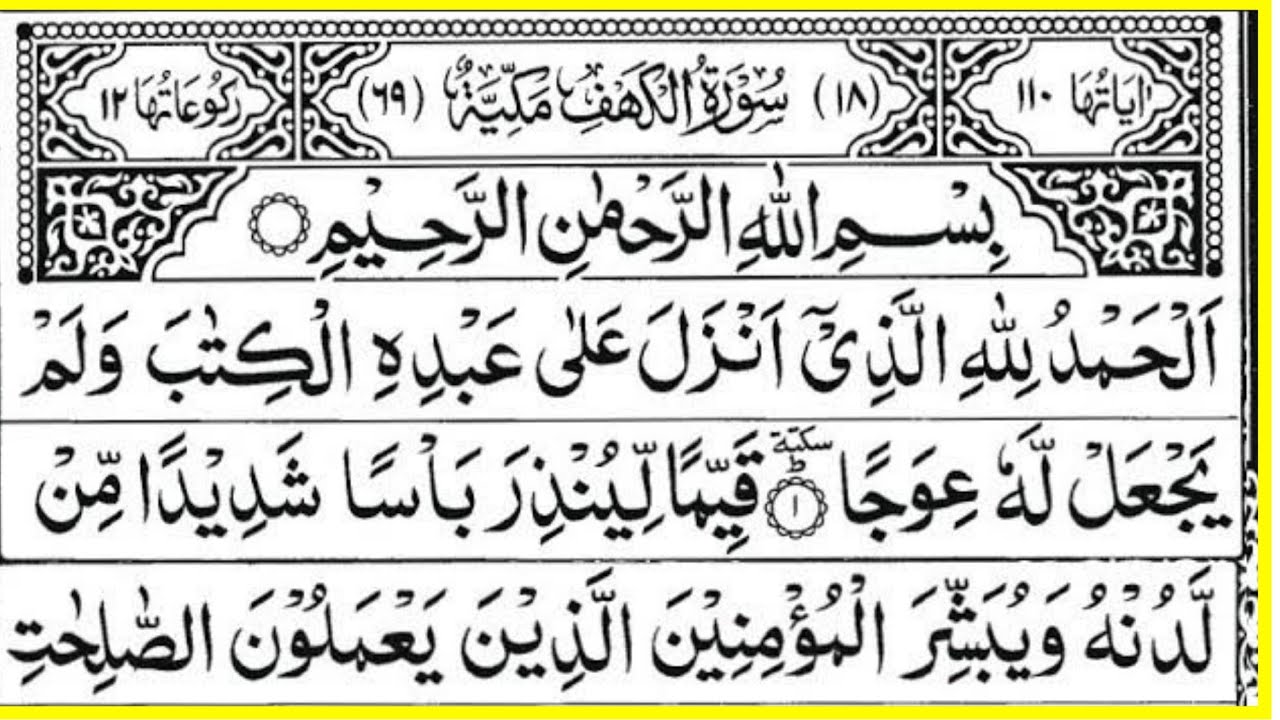 اٰيَاتُهَا ١١٠
(١٨) سُوْرَةُ الْكَهْفِ مَكِّيَّةٌ (٦٩)
رُكُوْعَاتُهَا ١٢
بِسْمِ اللّٰهِ الرَّحْمٰنِ الرَّحِيْمِ
اَلْحَمْدُ لِلّٰهِ الَّذِىْٓ اَنْزَلَ عَلٰى عَبْدِهِ الْكِتٰبَ وَلَمْ
يَجْعَلْ لَّهٗ عِوَجًا ١ ط سكتة قَيِّمًا لِّيُنْذِرَ بَاْسًا شَدِيْدًا مِّنْ
لَّدُنْهُ وَيُبَشِّرَ الْمُؤْمِنِيْنَ الَّذِيْنَ يَعْمَلُوْنَ الصّٰلِحٰتِ